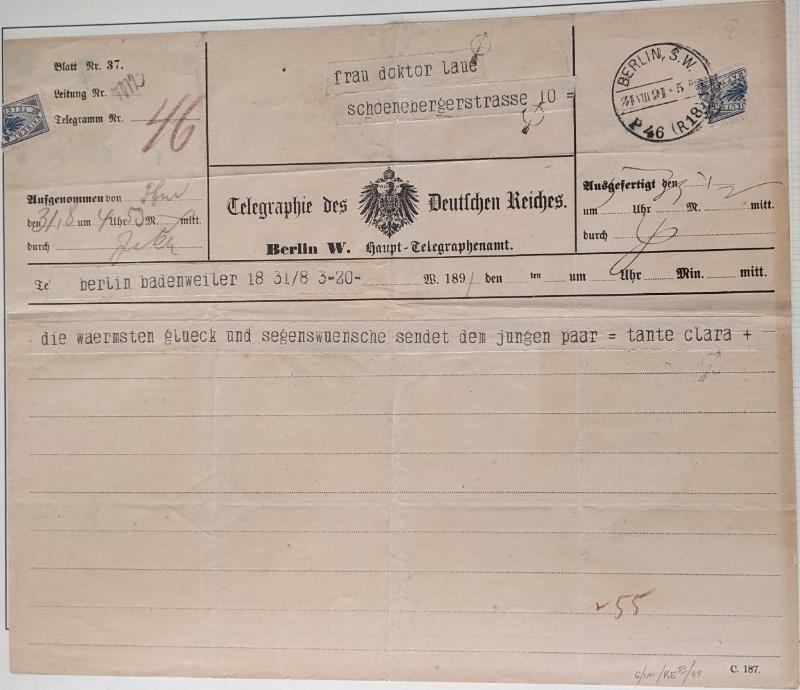 Blatt Nr. 37.
Leitung Nr.
Telegramm Nr. 46
frau doktor laue
schoenebergerstrasse 10 =
BERLIN, S.W.
P46 (R18)
Aufgenommen von
den 31/8 um 4 Uhr 53 M. mitt.
durch
Telegraphie des Deutschen Reiches.
Berlin W. Haupt-Telegraphenamt.
Ausgefertigt den
um Uhr M. mitt.
durch
Te berlin badenweiler 18 31/8 3-20- W. 1891 den ten um Uhr Min. mitt.
die waermsten glueck und segenswuensche sendet dem jungen paar = tante clara +
55
C. 187.